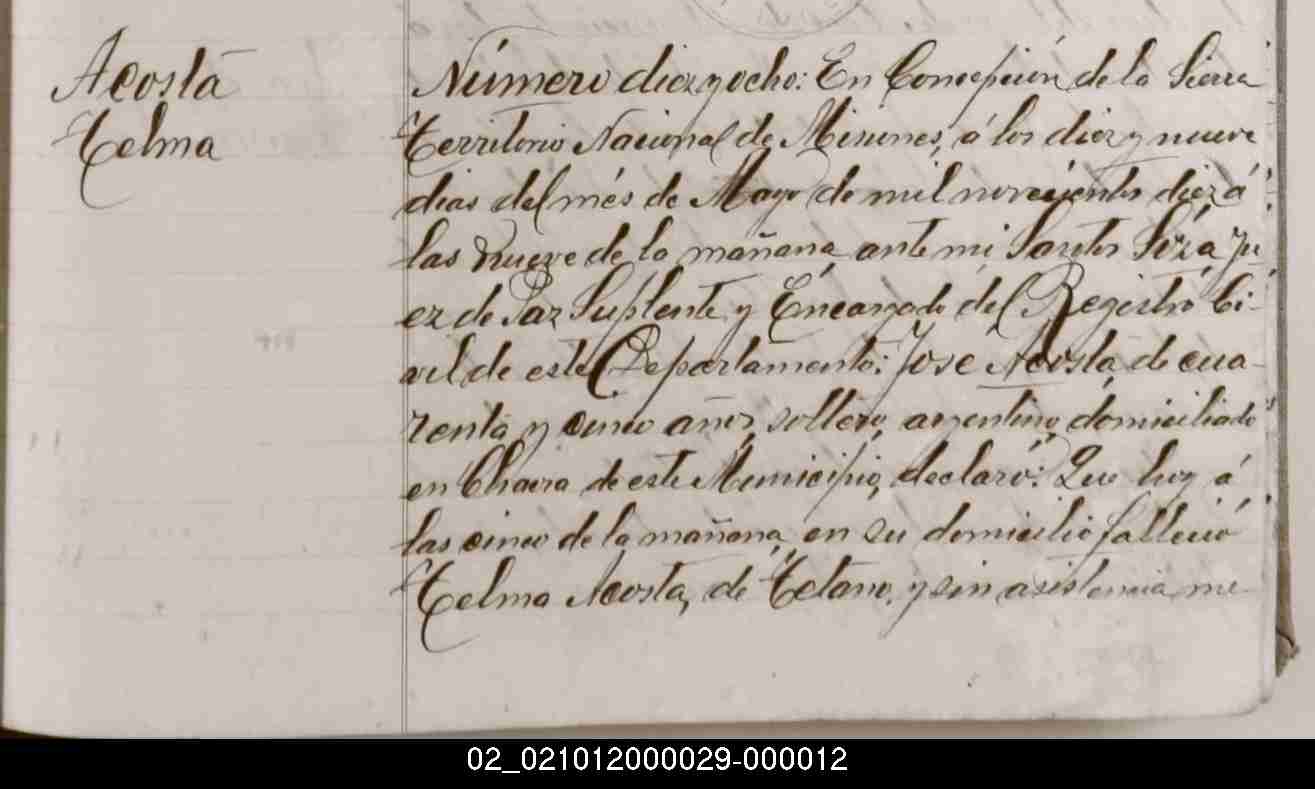 Acosta
Telma
Número diez y ocho: En Concepción de la Sierra
Territorio Nacional de Misiones, á los diez y nueve
dias del més de Mayo de mil novecientos diez á
las nueve de la mañana, ante mi Santos Soza Ju
ez de Paz Suplente y Encargado del Registro Ci-
vil de este Departamento: José Acosta de cua-
renta y cinco años, soltero, argentino, domiciliado
en Chacra de este Municipio, declaró: Que hoy á
las cinco de la mañana, en su domicilio falleció
Telma Acosta, de Tetano, y sin asistencia me-
02_021012000029-000012